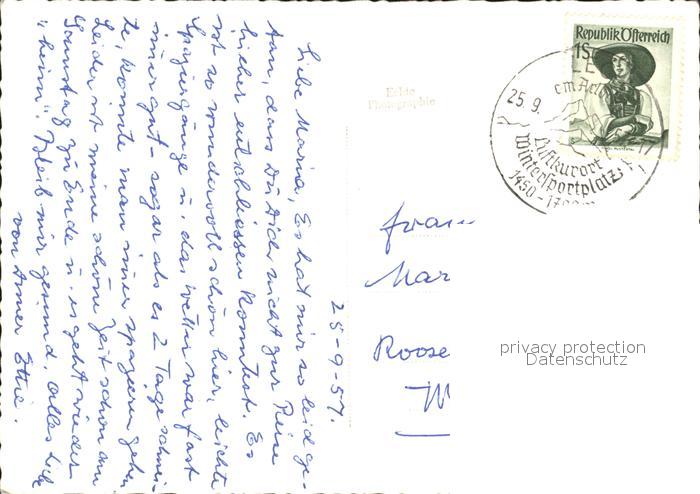 25-9-57.
Liebe Maria, Es hat mir so leid ge-
tan, dass Du Dich nicht zur Reise
hieher entschliessen konntest. Es
ist so wundervoll schön hier, leichte
Spaziergänge u. das Wetter war fast
immer gut - sogar als es 2 Tage schnei-
te, konnte man immer spazieren gehen
Leider ist meine schöne Zeit schon am
Samstag zu Ende u. es geht wieder
"heim". Bleib mir gesund, alles Liebe
von Deiner Ettie.
Echte
Photographie
Republik Österreich
1S
25. 9.
Luftkurort
Wintersportplatz
1450-17
Frau
Mar
Roose
W
privacy protection
Datenschutz